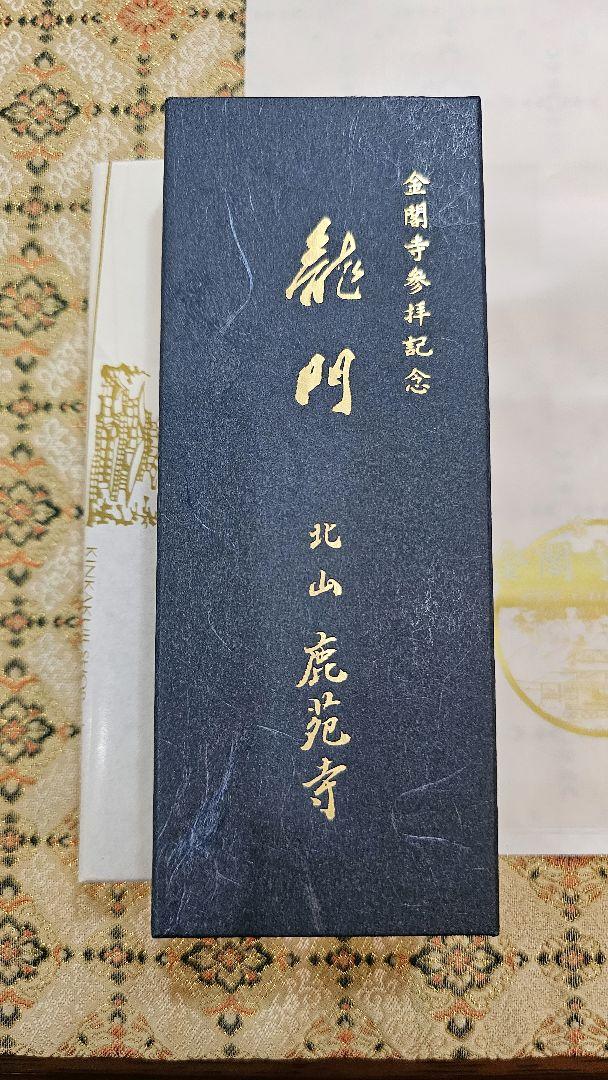 金閣寺参拝記念
龍門
北山 鹿苑寺
KINKAKUJI